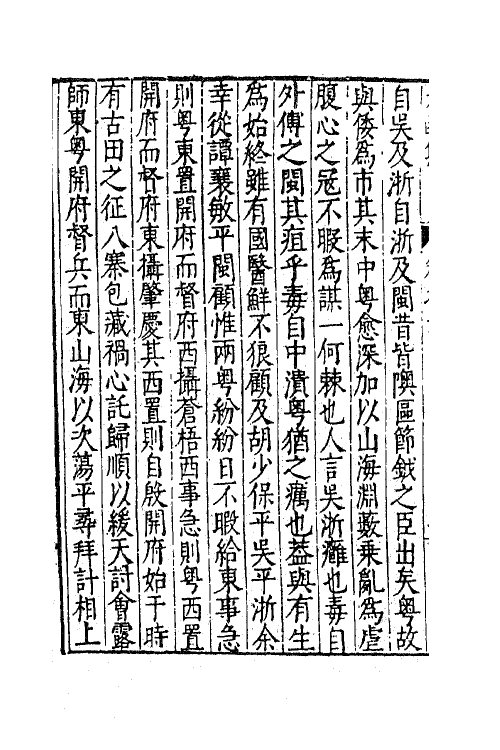 自吳及浙自浙及閩昔皆噢區節鉞之臣出矣粤故
與倭爲市其末中粤愈深加以山海淵藪乗亂爲虐
腹心之冦不暇爲謀一何棘也人言吳浙癰也毒自
外傅之閩其疽乎毒自中潰粤猶之癘也葢與有生
爲始終雖有國醫鮮不狼顧及胡少保平吳平浙余
幸從譚襄敏平閩顧惟兩粤紛紛日不暇給東事急
則粤東置開府而督府西攝蒼梧西事急則粤西置
開府而督府東攝肇慶其西置則自殷開府始于時
有古田之征八寨包藏禍心託歸順以緩天討會露
師東粤開府督兵而東山海以次蕩平尋拜計相上